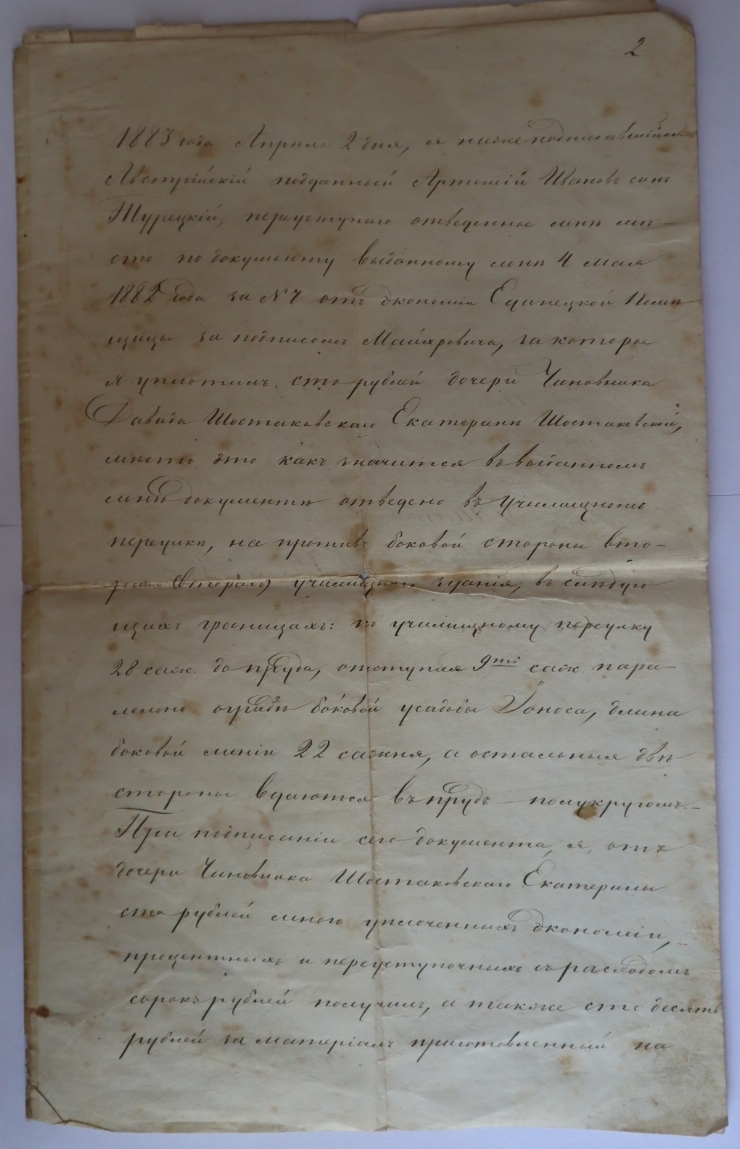 2
1883 года Апреля 2 дня, я нижеподписавшийся
Австрійскій подданный Артемій Ивановъ сынъ
Турецкій, переуступаю отведенное мнѣ мѣ-
сто по документу выданному мнѣ 4 мая
1882 года за № 7 отъ экономіи Единецкой Помѣ
щицы за подписомъ Майхровича, за которое
я уплотилъ сто рублей дочери Чиновника
Давида Шостаковскаго Екатеринѣ Шостаковской,
мѣсто это какъ значится въ выданномъ
мнѣ документѣ отведено въ Училищномъ
переулкѣ, на противъ боковой стороны вто-
(втораго) училищнаго зданія, въ слѣдую
щихъ границахъ: по училищному переулку
28 саж. до пруда, отступая 9ти саж. пара-
лельно оградѣ боковой усадьбы Доноса, длина
боковой линіи 22 сажня, а остальныя двѣ
стороны вдаются въ прудъ полукругомъ.-
При подписаніи сего документа, я, отъ
дочери Чиновника Шостаковскаго Екатерины
сто рублей мною уплоченныхъ экономіи,
процентныхъ и переуступочныхъ съ расходомъ
сорокъ рублей получилъ, а также сто десять
рублей за матеріалъ приготовленный на